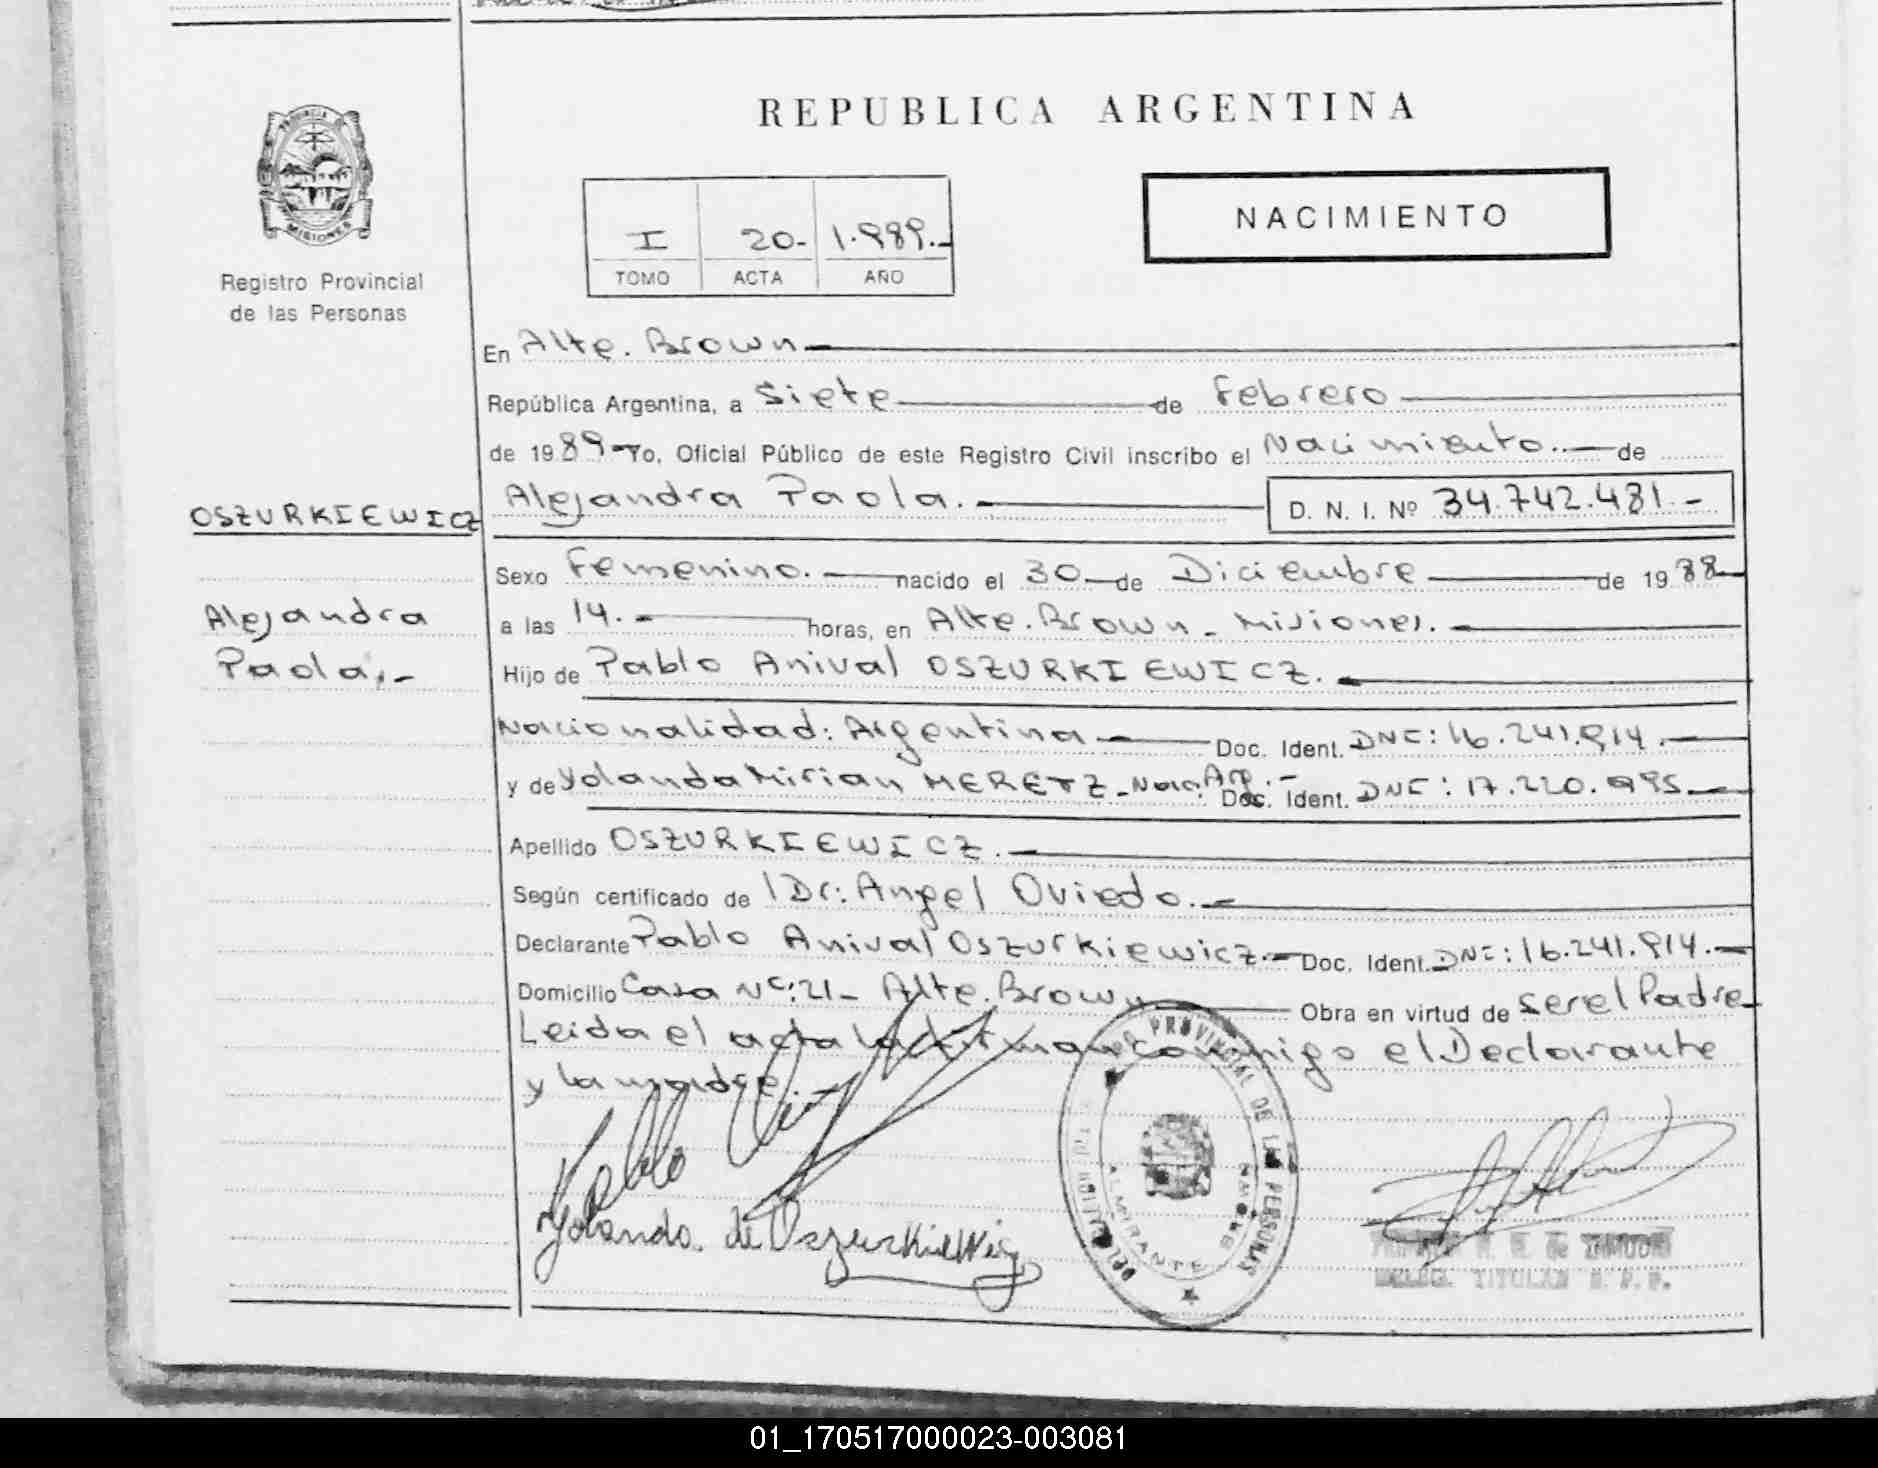 REPUBLICA ARGENTINA
PROVINCIA
MISIONES
Registro Provincial
de las Personas
I 20.- 1.989.-
TOMO ACTA AÑO
NACIMIENTO
En Alte. Brown
República Argentina, a Siete de Febrero
de 1989-Yo, Oficial Público de este Registro Civil inscribo el Nacimiento.- de
OSZURKIEWICZ
Alejandra Paola.- D. N. I. Nº 34.742.481.-
Sexo Femenino.- nacido el 30 de Diciembre de 1988
Alejandra
Paola.-
a las 14.- horas, en Alte. Brown - Misiones.
Hijo de Pablo Anival OSZURKIEWICZ.
Nacionalidad: Argentina Doc. Ident. DNI: 16.241.914.
y de Yolanda Mirian MERETZ - Nac. Arg.- Doc. Ident. DNI: 17.220.995
Apellido OSZURKIEWICZ.
Según certificado de Dr: Angel Oviedo.
Declarante Pablo Anival Oszurkiewicz.- Doc. Ident. DNI: 16.241.914.
Domicilio Casa Nº: 21 - Alte. Brown Obra en virtud de ser el Padre
Leida el acta la firman conmigo el Declarante
y la madre.
PROVINCIAL DE LAS PERSONAS
ALMIRANTE BROWN
Pablo
Yolanda de Oszurkiewicz
TITULAR R. P. P.
01_170517000023-003081